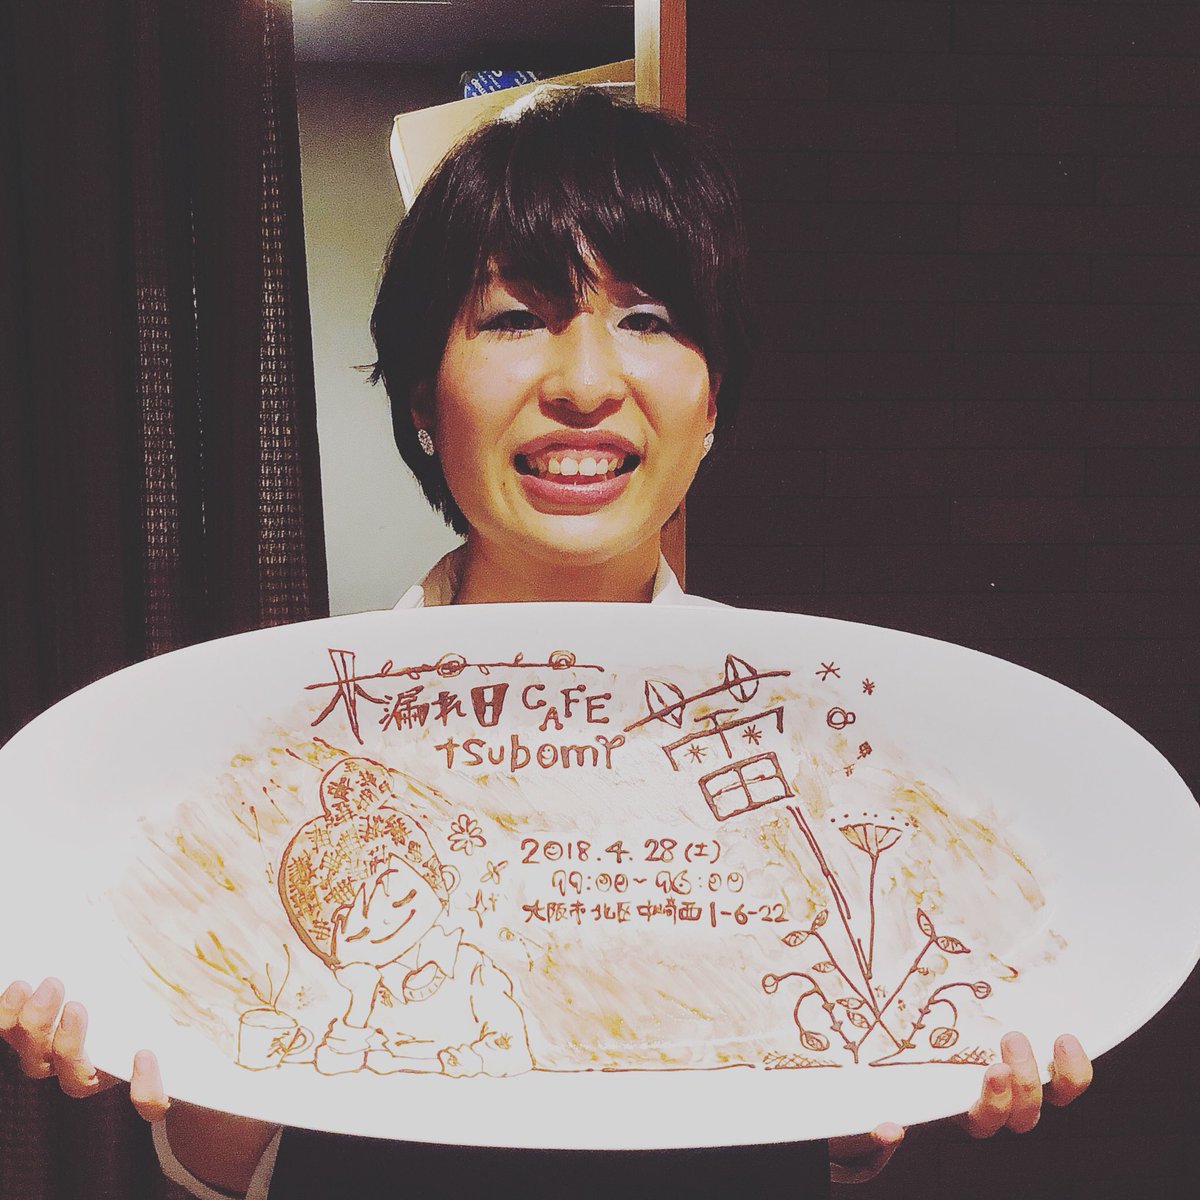 木漏れ日CAFE
tsubomi
蕾
2018.4.28(土)
11:00~16:00
大阪市北区中崎西1-6-22